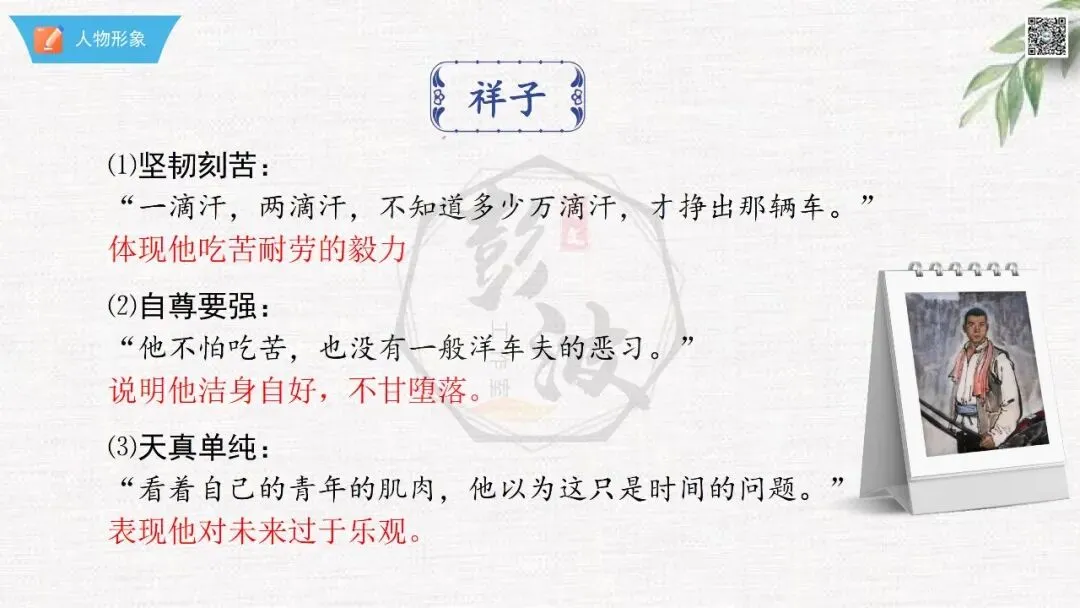 人物形象
祥子
⑴坚韧刻苦：
“一滴汗，两滴汗，不知道多少万滴汗，才挣出那辆车。”
体现他吃苦耐劳的毅力
⑵自尊要强：
“他不怕吃苦，也没有一般洋车夫的恶习。”
说明他洁身自好，不甘堕落。
⑶天真单纯：
“看着自己的青年的肌肉，他以为这只是时间的问题。”
表现他对未来过于乐观。
彭波
工作室